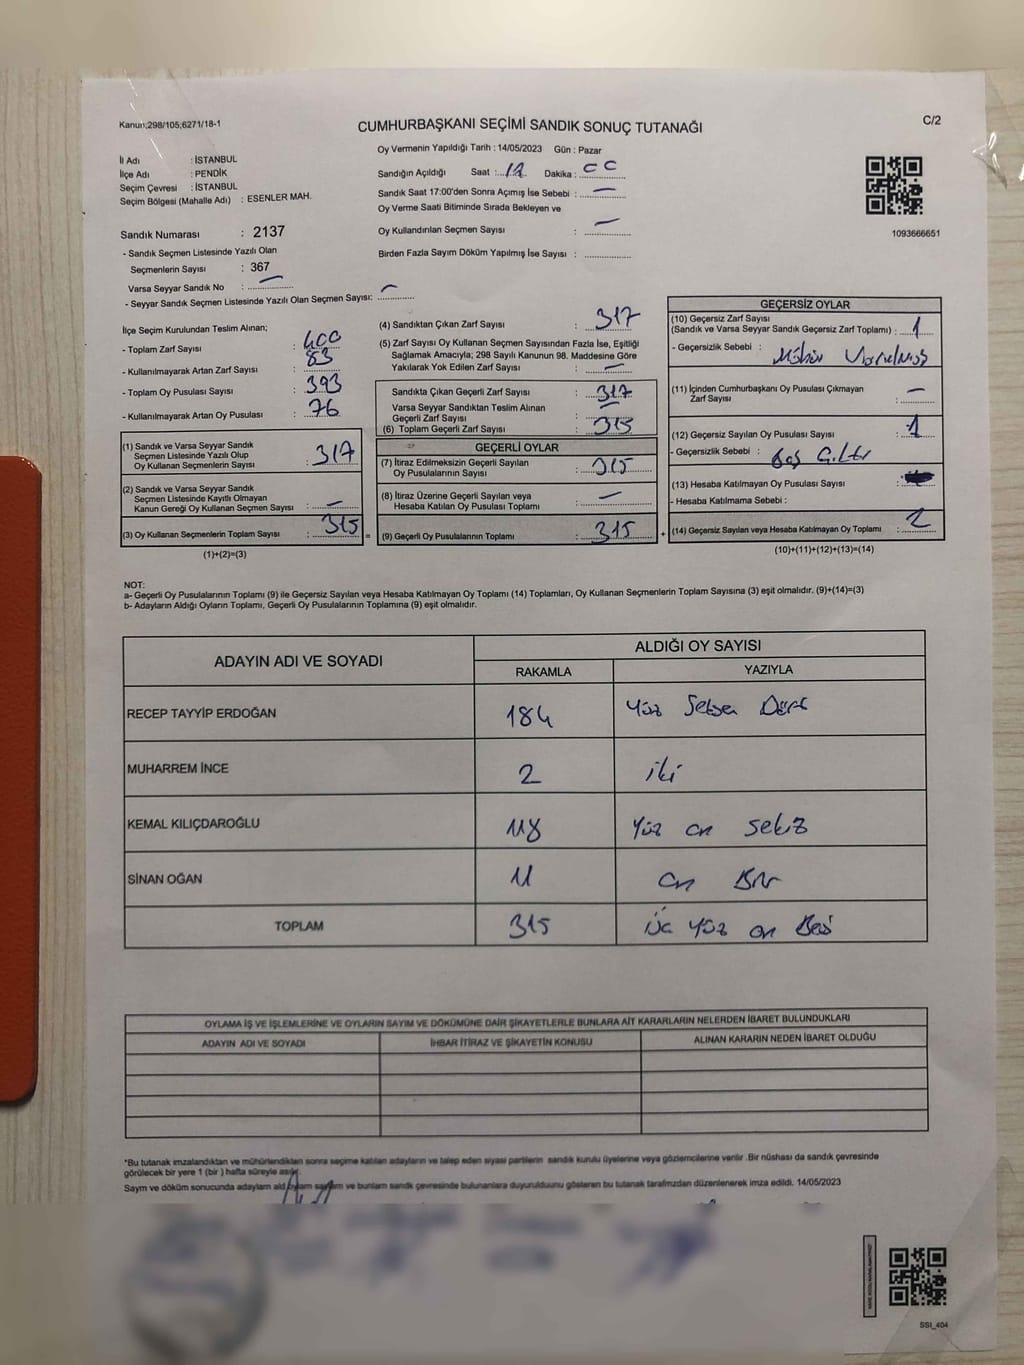 Kanun:298/105;6271/18-1
CUMHURBAŞKANI SEÇİMİ SANDIK SONUÇ TUTANAĞI
C/2
İl Adı : İSTANBUL
İlçe Adı : PENDİK
Seçim Çevresi : İSTANBUL
Seçim Bölgesi (Mahalle Adı) : ESENLER MAH.
Sandık Numarası : 2137
- Sandık Seçmen Listesinde Yazılı Olan
Seçmenlerin Sayısı : 367
Varsa Seyyar Sandık No : —
- Seyyar Sandık Seçmen Listesinde Yazılı Olan Seçmen Sayısı: —
Oy Vermenin Yapıldığı Tarih : 14/05/2023 Gün : Pazar
Sandığın Açıldığı Saat : Dakika :
Sandık Saat 17:00'den Sonra Açılmış İse Sebebi : —
Oy Verme Saati Bitiminde Sırada Bekleyen ve
Oy Kullandırılan Seçmen Sayısı : —
Birden Fazla Sayım Döküm Yapılmış İse Sayısı :
1093666651
İlçe Seçim Kurulundan Teslim Alınan;
- Toplam Zarf Sayısı : 400
- Kullanılmayarak Artan Zarf Sayısı : 83
- Toplam Oy Pusulası Sayısı : 393
- Kullanılmayarak Artan Oy Pusulası : 76
(1) Sandık ve Varsa Seyyar Sandık
Seçmen Listesinde Yazılı Olup
Oy Kullanan Seçmenlerin Sayısı : 317
(2) Sandık ve Varsa Seyyar Sandık
Seçmen Listesinde Kayıtlı Olmayan
Kanun Gereği Oy Kullanan Seçmen Sayısı : —
(3) Oy Kullanan Seçmenlerin Toplam Sayısı : 315 =
(1)+(2)=(3)
(4) Sandıktan Çıkan Zarf Sayısı : 317
(5) Zarf Sayısı Oy Kullanan Seçmen Sayısından Fazla İse, Eşitliği
Sağlamak Amacıyla; 298 Sayılı Kanunun 98. Maddesine Göre
Yakılarak Yok Edilen Zarf Sayısı : —
Sandıkta Çıkan Geçerli Zarf Sayısı : 317
Varsa Seyyar Sandıktan Teslim Alınan
Geçerli Zarf Sayısı : —
(6) Toplam Geçerli Zarf Sayısı : 315
GEÇERLİ OYLAR
(7) İtiraz Edilmeksizin Geçerli Sayılan
Oy Pusulalarının Sayısı : 315
(8) İtiraz Üzerine Geçerli Sayılan veya
Hesaba Katılan Oy Pusulası Toplamı : —
(9) Geçerli Oy Pusulalarının Toplamı : 315 +
GEÇERSİZ OYLAR
(10) Geçersiz Zarf Sayısı
(Sandık ve Varsa Seyyar Sandık Geçersiz Zarf Toplamı) : 1
- Geçersizlik Sebebi : Mühür
(11) İçinden Cumhurbaşkanı Oy Pusulası Çıkmayan
Zarf Sayısı : —
(12) Geçersiz Sayılan Oy Pusulası Sayısı : 1
- Geçersizlik Sebebi : Boş
(13) Hesaba Katılmayan Oy Pusulası Sayısı :
- Hesaba Katılmama Sebebi :
(14) Geçersiz Sayılan veya Hesaba Katılmayan Oy Toplamı : 2
(10)+(11)+(12)+(13)=(14)
NOT:
a- Geçerli Oy Pusulalarının Toplamı (9) ile Geçersiz Sayılan veya Hesaba Katılmayan Oy Toplamı (14) Toplamları, Oy Kullanan Seçmenlerin Toplam Sayısına (3) eşit olmalıdır. (9)+(14)=(3)
b- Adayların Aldığı Oyların Toplamı, Geçerli Oy Pusulalarının Toplamına (9) eşit olmalıdır.
ADAYIN ADI VE SOYADI
ALDIĞI OY SAYISI
RAKAMLA YAZIYLA
RECEP TAYYİP ERDOĞAN 184 Yüz Seksen Dört
MUHARREM İNCE 2 iki
KEMAL KILIÇDAROĞLU 118 Yüz on sekiz
SİNAN OĞAN 11 on Bir
TOPLAM 315 Üç Yüz on Beş
OYLAMA İŞ VE İŞLEMLERİNE VE OYLARIN SAYIM VE DÖKÜMÜNE DAİR ŞİKAYETLERLE BUNLARA AİT KARARLARIN NELERDEN İBARET BULUNDUKLARI
ADAYIN ADI VE SOYADI İHBAR İTİRAZ VE ŞİKAYETİN KONUSU ALINAN KARARIN NEDEN İBARET OLDUĞU
*Bu tutanak imzalandıktan ve mühürlendikten sonra seçime katılan adayların ve talep eden siyasi partilerin sandık kurulu üyelerine veya gözlemcilerine verilir .Bir nüshası da sandık çevresinde
görülecek bir yere 1 (bir ) hafta süreyle asılır.
Sayım ve döküm sonucunda adayların ald oyların sayıları ve bunların sandık çevresinde bulunanlara duyurulduğunu gösteren bu tutanak tarafımızdan düzenlenerek imza edildi. 14/05/2023
SSI_404